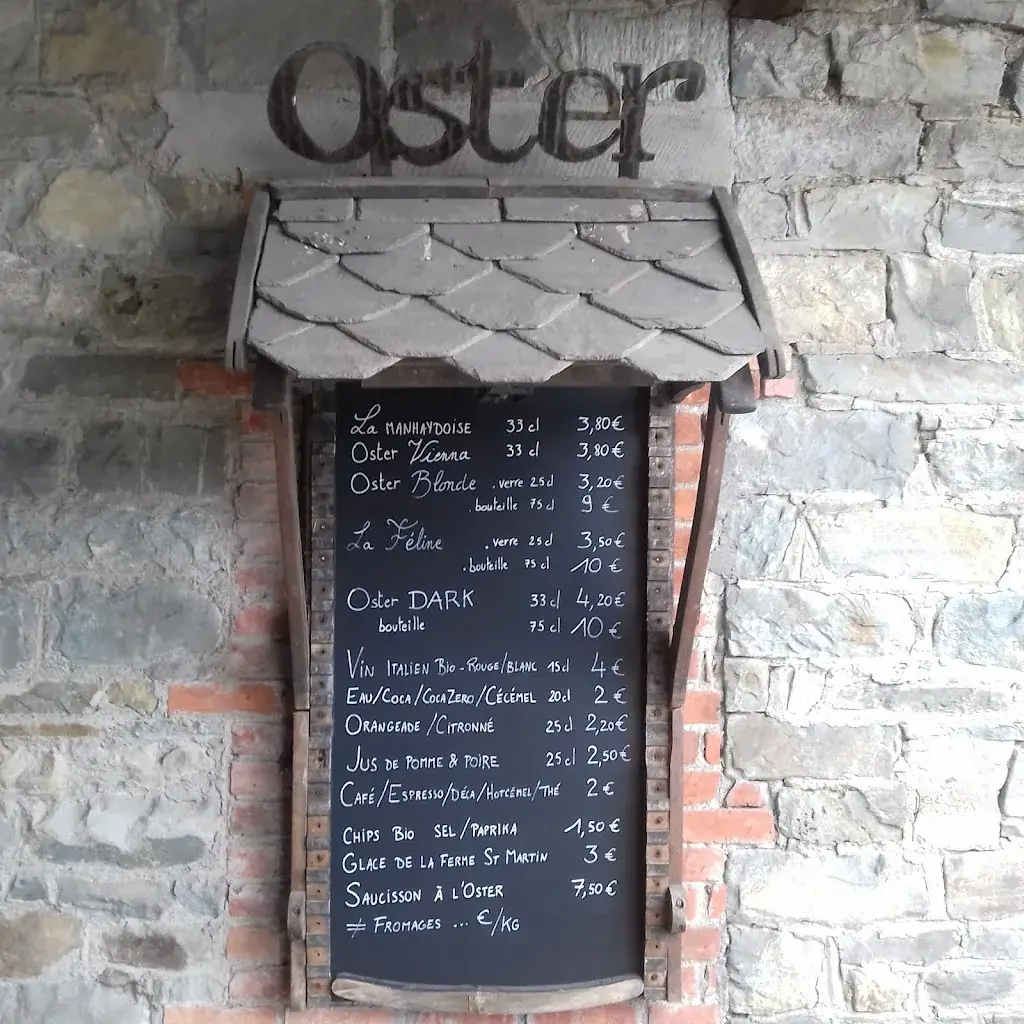 Oster
La MANHAYDOISE 33 cl 3,80€
Oster Vienna 33 cl 3,80€
Oster Blonde . verre 25cl 3,20€
. bouteille 75 cl 9 €
La Féline . verre 25cl 3,50€
. bouteille 75 cl 10 €
Oster DARK 33cl 4,20€
bouteille 75 cl 10 €
VIN ITALIEN BIO - ROUGE/BLANC 15cl 4 €
EAU/COCA/COCA ZERO/CÉCÉMEL 20cl 2 €
ORANGEADE /CITRONNÉ 25cl 2,20€
JUS DE POMME & POIRE 25cl 2,50€
CAFÉ/ESPRESSO/DÉCA/HOTCÉMEL/THÉ 2 €
CHIPS BIO SEL/PAPRIKA 1,50€
GLACE DE LA FERME ST MARTIN 3 €
SAUCISSON À L'OSTER 7,50€
≠ FROMAGES ... €/KG